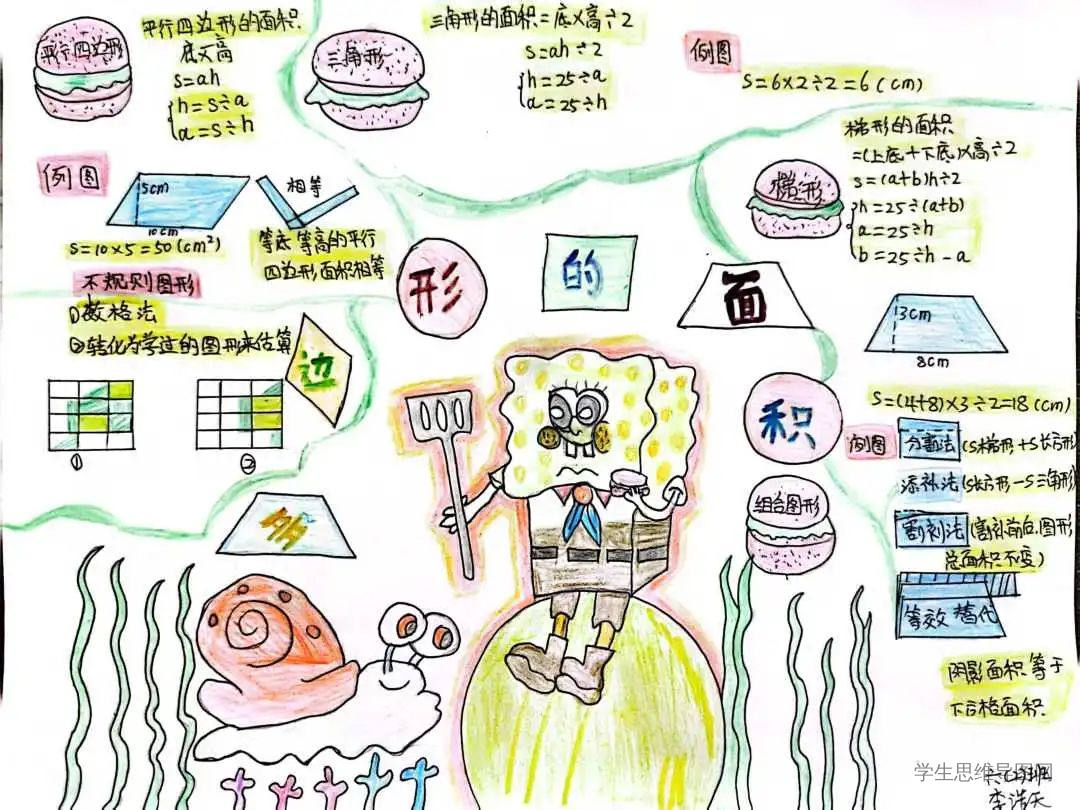 平行四边形
平行四边形的面积
底×高
S=ah
h=S÷a
a=S÷h
三角形
三角形的面积=底×高÷2
S=ah÷2
h=2S÷a
a=2S÷h
例图
S=6×2÷2=6(cm)
例图
5cm
10cm
S=10×5=50(cm²)
相等
等底等高的平行
四边形面积相等
梯形
梯形的面积
=(上底+下底)×高÷2
S=(a+b)h÷2
h=2S÷(a+b)
a=2S÷h
b=2S÷h-a
3cm
8cm
S=(4+8)×3÷2=18(cm)
不规则图形
①数格法
②转化为学过的图形来估算
①
②
多
边
形
的
面
积
组合图形
例图
分割法(S梯形+S长方形)
添补法(S长方形-S三角形)
割补法(割补前后,图形
总面积不变)
等效替代
阴影面积等于
面积
学生思维导图网
班